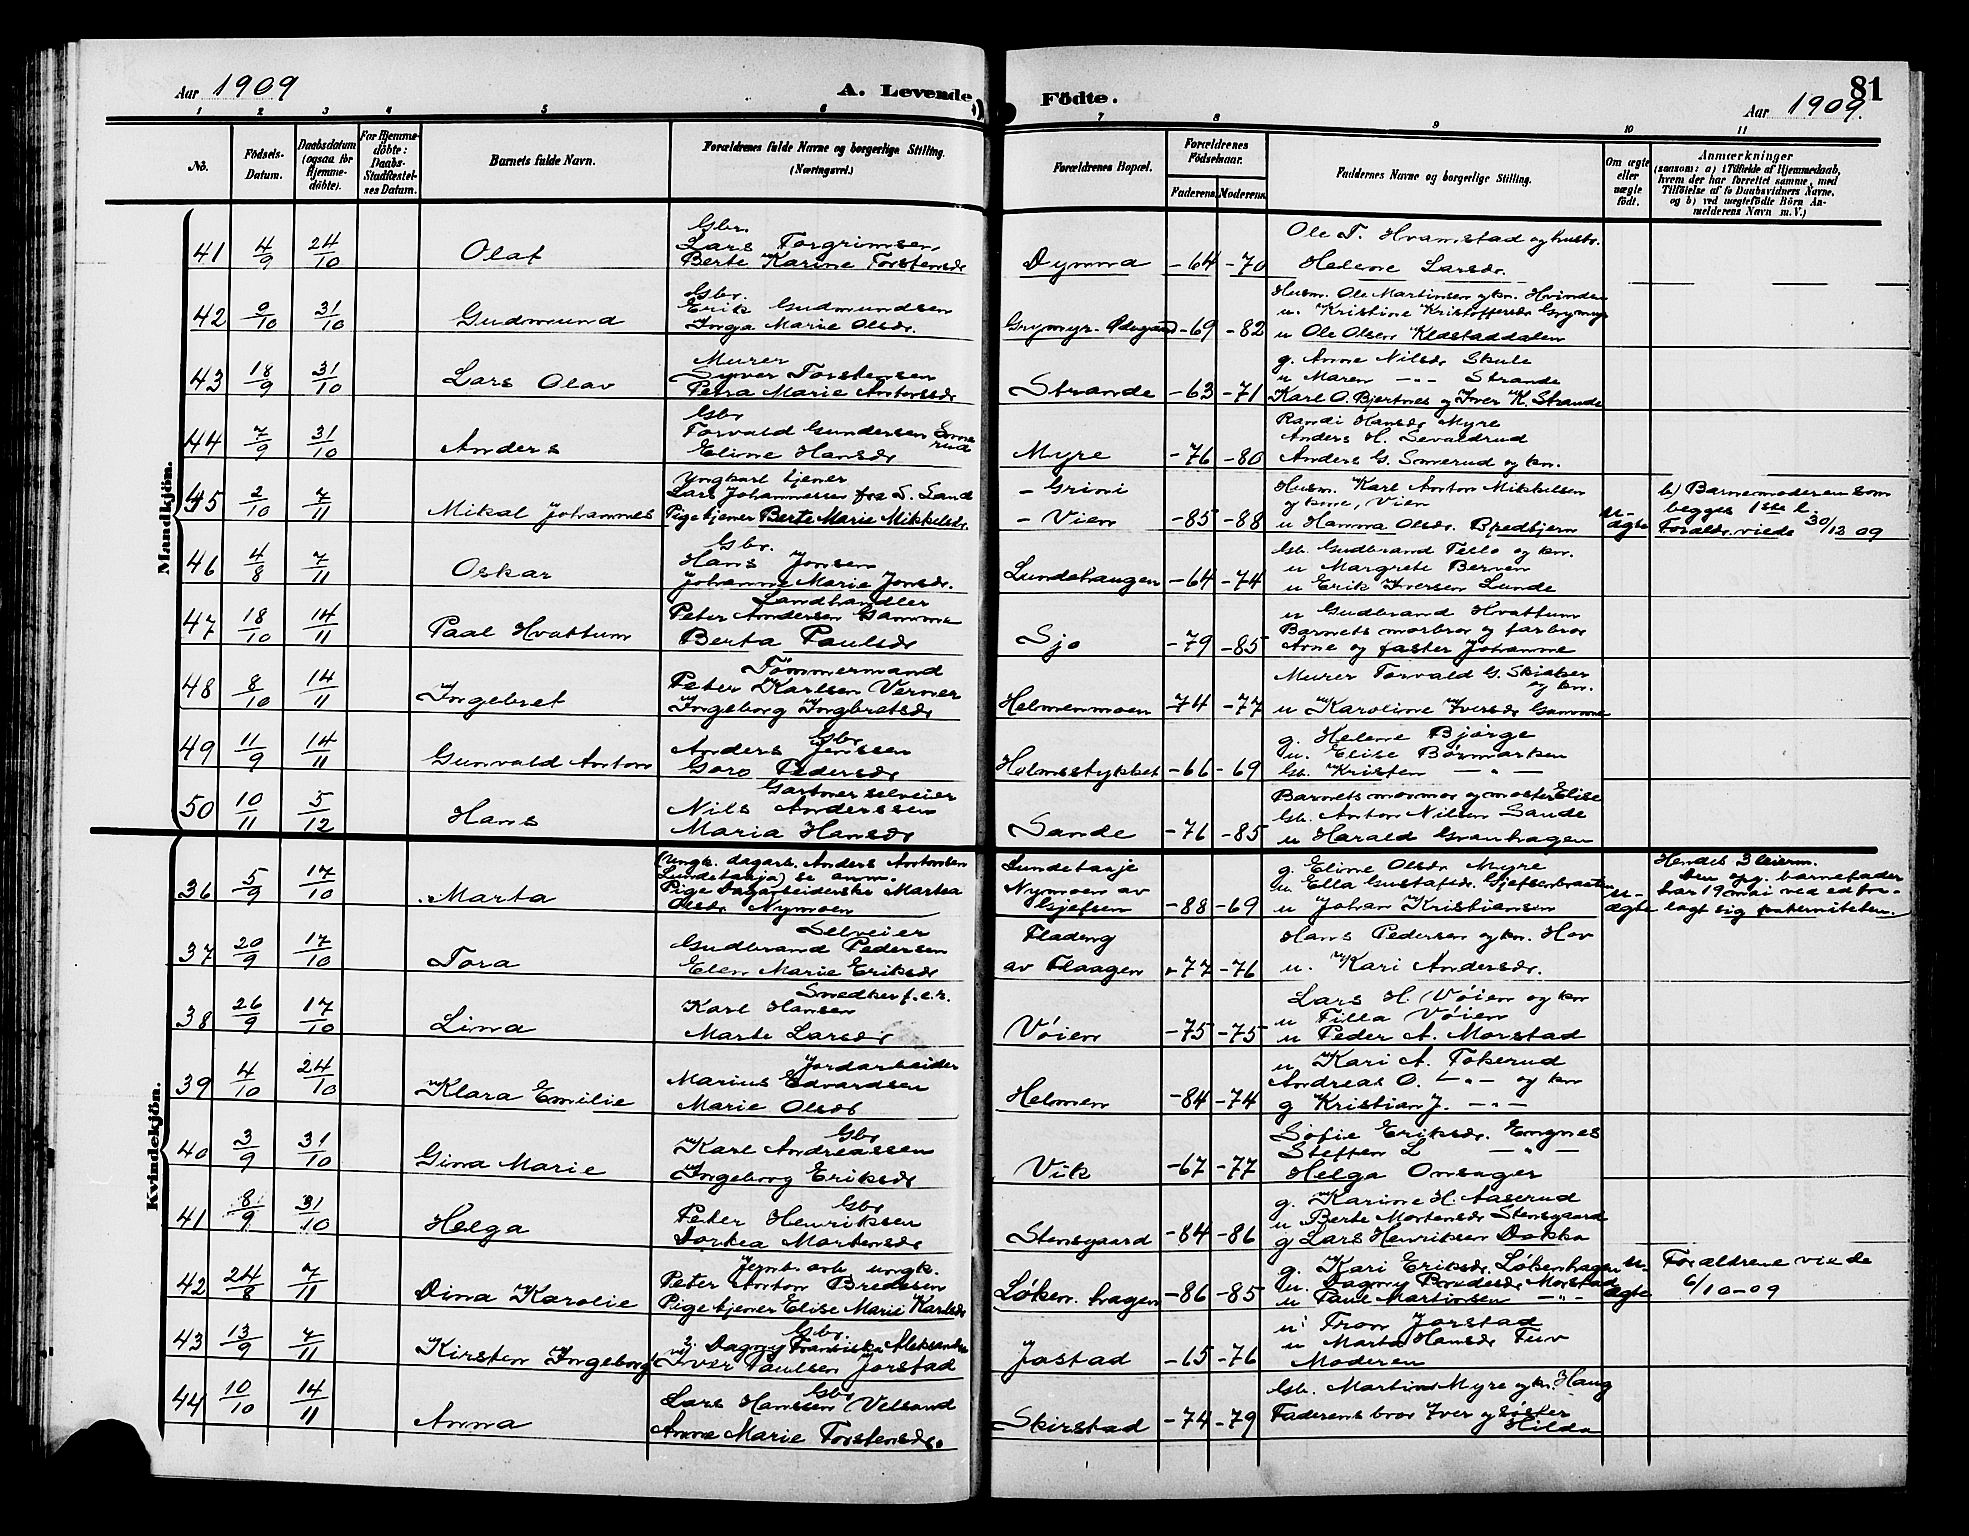 Aar 1909
A. Levende
Födte.
81
Aar 1909.
1 2 3 4 5 6 7 8 9 10 11
No.
Födsels-
Datum.
Daabsdatum
(ogsaa for
Hjemme-
döbte).
For Hjemme-
döbte:
Daabs-
Stadfæstel-
ses Datum.
Barnets fulde Navn.
Forældrenes fulde Navne og borgerlige Stilling.
(Næringsvei.)
Forældrenes Bopæl.
Forældrenes
Födselsaar.
Faderens. Moderens.
Faddernes Navne og borgerlige Stilling.
Om ægte
eller
uægte
födt.
Anmærkninger
(saasom: a) i Tilfælde af Hjemmedaab,
hvem der har forrettet samme, med
Tilföielse af to Daabsvidners Navne,
og b) ved uægtefödte Börn An-
melderens Navn m. V.)
Mandkjön.
41 4/9 24/10 Olaf
Gbr.
Lars Torgrimsen
Berte Karine Torstensdr
Dynna -64 -70
Ole T. Hvamstad og hustr.
Helene Larsdr.
42 9/10 31/10 Gudmund
Gbr.
Erik Gudmundsen
Inga Marie Olsdr.
-69 -82
Husm. Ole Martinsen og kn. Hvinden
u. Kristine Kristoffersdr Grymyr
u Ole Olsen Klæstaddalen
43 18/9 31/10 Lars Olav
Murer
Syver Torstensen
Petra Marie Antonsdr
Strande -63 -71
g. Anne Nilsdr Skute
u Maren -"- Strande
Karl O. Bjertnes og Iver K. Strande
44 7/9 31/10 Anders
Gbr
Torvald Gundersen Sme
rud
Eline Hansdr
Myre -76 -80
Randi Hansdr Myre
Anders H. Sevaldrud
Anders G. Smerud og kn.
45 2/10 7/11 Mikal Johannes
Ungkarl tjener
Lars Johannessen fra S. Sand
Pige tjener Berte Marie Mikkelsdr
- Grini
- Vien -85 -88
Husm. Karl Anton Mikkelsen
og kone, Vien
u Hanna Olsdr. Bredbjern
u-
ægte
b) Barnemoderen som
begges 1ste l.
Foraldr. viede 30/12 09
46 4/8 7/11 Oskar
Gbr.
Hans Jonsen
Johanne Marie Jonsdr.
Lundehaugen -64 -74
Gb. Gudbrand Teslo og kn.
u Margrete Bernen
u Erik Iversen Lunde
47 18/10 14/11 Paal Hvattum
Landhandler
Peter Andersen Gamme
Berta Paulsdr
Sjo -79 -85
u Gudbrand Hvattum
Barnets morbror og farbror
Arne og faster Johanne
48 8/10 14/11 Ingebret
Tømmermand
Peter Karlsen Verner
Ingeborg Ingbretsdr
Helmenmoen -74 -77
Murer Torvald G. Skiaker
og kn.
u Karoline Iversdr Gamme
49 11/9 14/11 Gunvald Anton
Gbr
Anders Jenssen
Goro Pedersdr
Helmsstykket -66 -69
g. Helene Bjørge
u. Elise Børmarken
Gb. Kristen -"-
50 10/11 5/12 Hans
Gartner selveier
Nils Anderssen
Maria Hansdr
Sande -76 -85
Barnets mormor og moster Elise
Gb. Anton Nilsen Sande
u Harald Granhagen
Kvindekjön.
36 5/9 17/10 Marta
(Ungk. dagarb. Anders Antonsen
Lundetarja) se anm.
Pige Dagarbeiderske Martea
Olsdr Nymoen
Lundetarje
Nymoen av
Gjefsen -88 -69
g. Eline Olsdr Myre
u Ella Gustafsdr. Gjefsenbraaten
u Johan Kristiansen
u-
ægte
Hendes 3 leierm.
Den opg. barnefader
har 19 mai ved ed fra-
lagt sig paterniteten.
37 20/9 17/10 Tora
Selveier
Gudbrand Pedersen
Elen Marie Eriksdr
Fladeng
av Flaagen -77 -76
Hans Pedersen og kn. Hov
u. Kari Andersdr.
38 26/9 17/10 Lina
Karl Hansen
Marte Larsdr
Vøien -75 -75
Lars H. Vøien og kn
u Tilla Vøien
u Peder A. Morstad
39 4/10 24/10 Klara Emilie
Jordarbeider
Marius Edvardsen
Marie Olsdr
Helmen -84 -74
u Kari A. Tokerud
Andreas O. -"- og kn
g Kristian J. -"-
40 3/9 31/10 Gina Marie
Gbr
Karl Andreassen
Ingeborg Eriksdr
Vik -67 -77
Sofie Eriksdr. Engnes
Steffen L -"-
Helga Onsager
41 8/9 31/10 Helga
Gbr
Peter Henriksen
Dortea Mortensdr
Stensgaard -84 -86
g. Karine H. Aaserud
u Berte Mortensdr Stensgaard
g Lars Henriksen Dokka
42 24/8 7/11 Dina Karolie
Jernb. arb. ungk.
Peter Anton Bredesen
Pige tjener Elise Marie Karlsdr
Løken. hagen -86 -85
g. Kari Eriksdr. Løkenhagen
u. Dagny Morstad
u Paul Martinsen -"-
u-
ægte
Forældrene viede
6/10-09
43 13/9 7/11 Kirsten Ingeborg
Gbr.
Dagny Fransiska
Iver Paulsen Jorstad
Jostad -65 -76
u Tron Jorstad
u Marta Hansdr Tuv
Moderen
44 10/10 14/11 Anna
Gbr
Lars Hanssen Velsand
Anne Marie Torstensdr.
Skirstad -74 -79
Gb. Martin Myre og kn. Haug
Faderens bror Iver og søster
Hilda